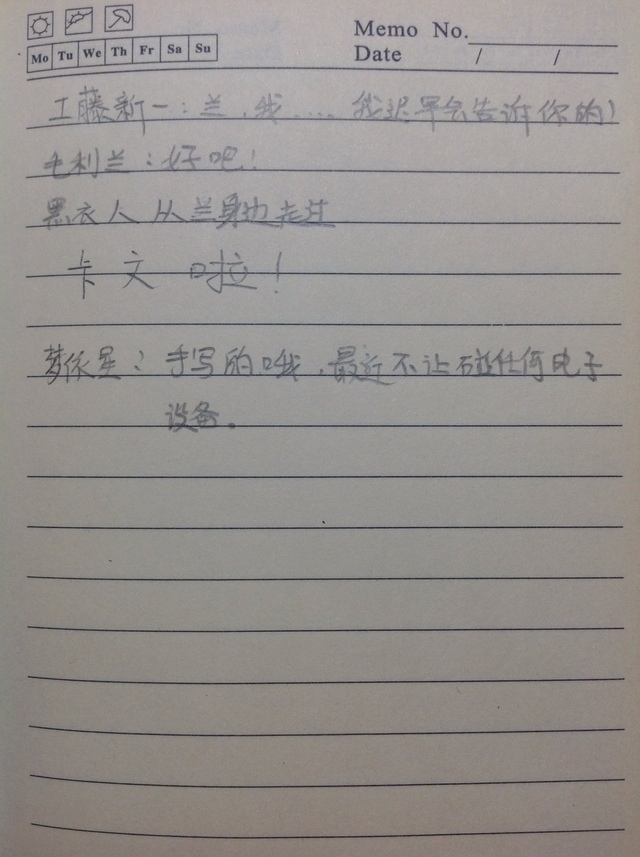 Memo No.
Date / /
Mo Tu We Th Fr Sa Su
工藤新一：兰，我....我迟早会告诉你的！
毛利兰：好吧！
黑衣人从兰身边走过
卡文啦！
梦依星：手写的哦，最近不让碰任何电子
设备。